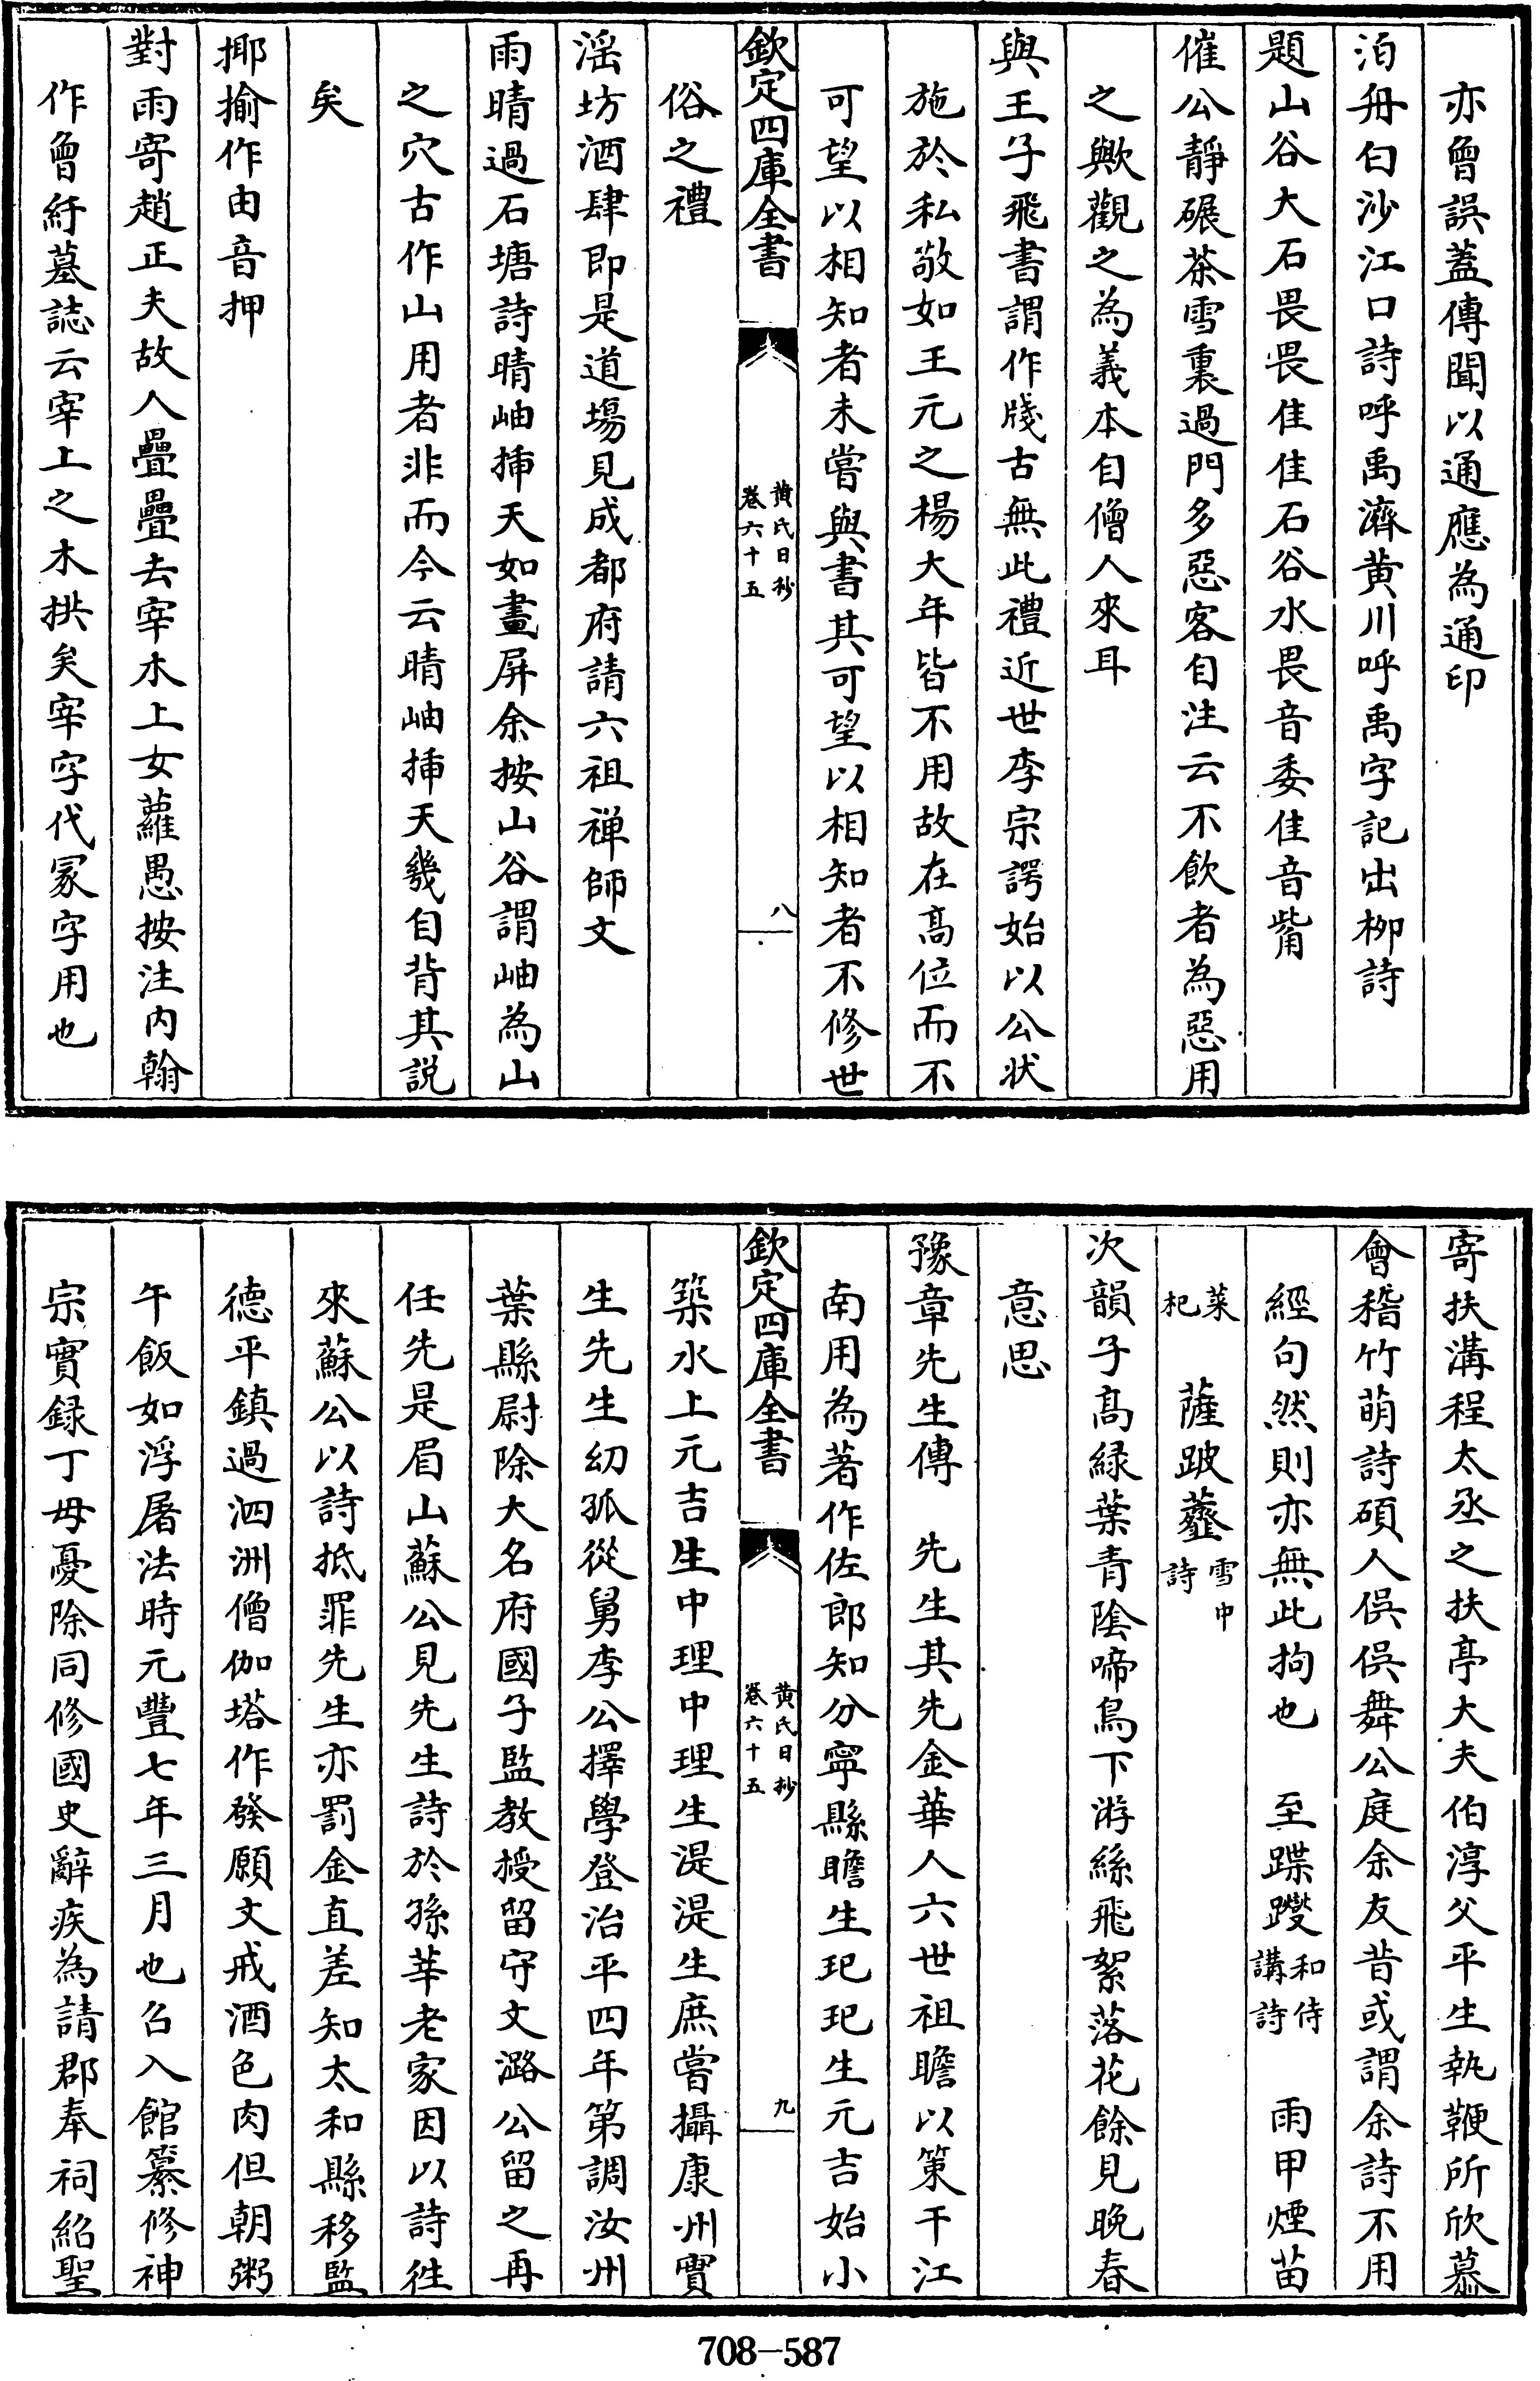 亦曾誤蓋傳聞以通應為通印
泊舟白沙江口詩呼禹濟黄川呼禹字記出栁詩
題山谷大石畏畏佳佳石谷水畏音委佳音觜
催公靜碾茶雪裏過門多惡客自注云不飲者為惡用
之歟觀之為義本自僧人來耳
與王子飛書謂作牋古無此禮近世李宗諤始以公狀
施於私敬如王元之楊大年皆不用故在髙位而不
可望以相知者未嘗與書其可望以相知者不修世
欽定四庫全書
黄氏日抄
卷六十五
八
俗之禮
滛坊酒肆即是道場見成都府請六祖禅師文
雨晴過石塘詩晴岫挿天如畫屏余按山谷謂岫為山
之穴古作山用者非而今云晴岫挿天㡬自背其説
矣
揶揄作由音押
對雨寄趙正夫故人疊疊去宰木上女蘿愚按注内翰
作曾紆墓誌云宰上之木拱矣宰字代冡字用也
寄扶溝程太丞之扶亭大夫伯淳父平生執鞭所欣慕
會稽竹萌詩碩人俁俁舞公庭余友昔或謂余詩不用
經句然則亦無此拘也　至蹀躞和侍講詩　雨甲煙苗
菜杞　薩跛虀雪中詩
次韻子髙緑葉青陰啼鳥下游絲飛絮落花餘見晚春
意思
豫章先生傳　先生其先金華人六世祖瞻以策干江
南用為著作佐郎知分寧縣瞻生玘玘生元吉始小
欽定四庫全書
黄氏日抄
卷六十五
九
築水上元吉生中理中理生湜湜生庶嘗攝康州實
生先生幼孤從舅李公擇學登治平四年第調汝州
葉縣尉除大名府國子監教授留守文潞公留之再
任先是眉山蘇公見先生詩於孫莘老家因以詩徃
來蘇公以詩抵罪先生亦罰金直差知太和縣移監
德平鎮過泗洲僧伽塔作發願文戒酒色肉但朝粥
午飯如浮屠法時元豐七年三月也召入館纂修神
宗實録丁母憂除同修國史辭疾為請郡奉祠紹聖
708-587